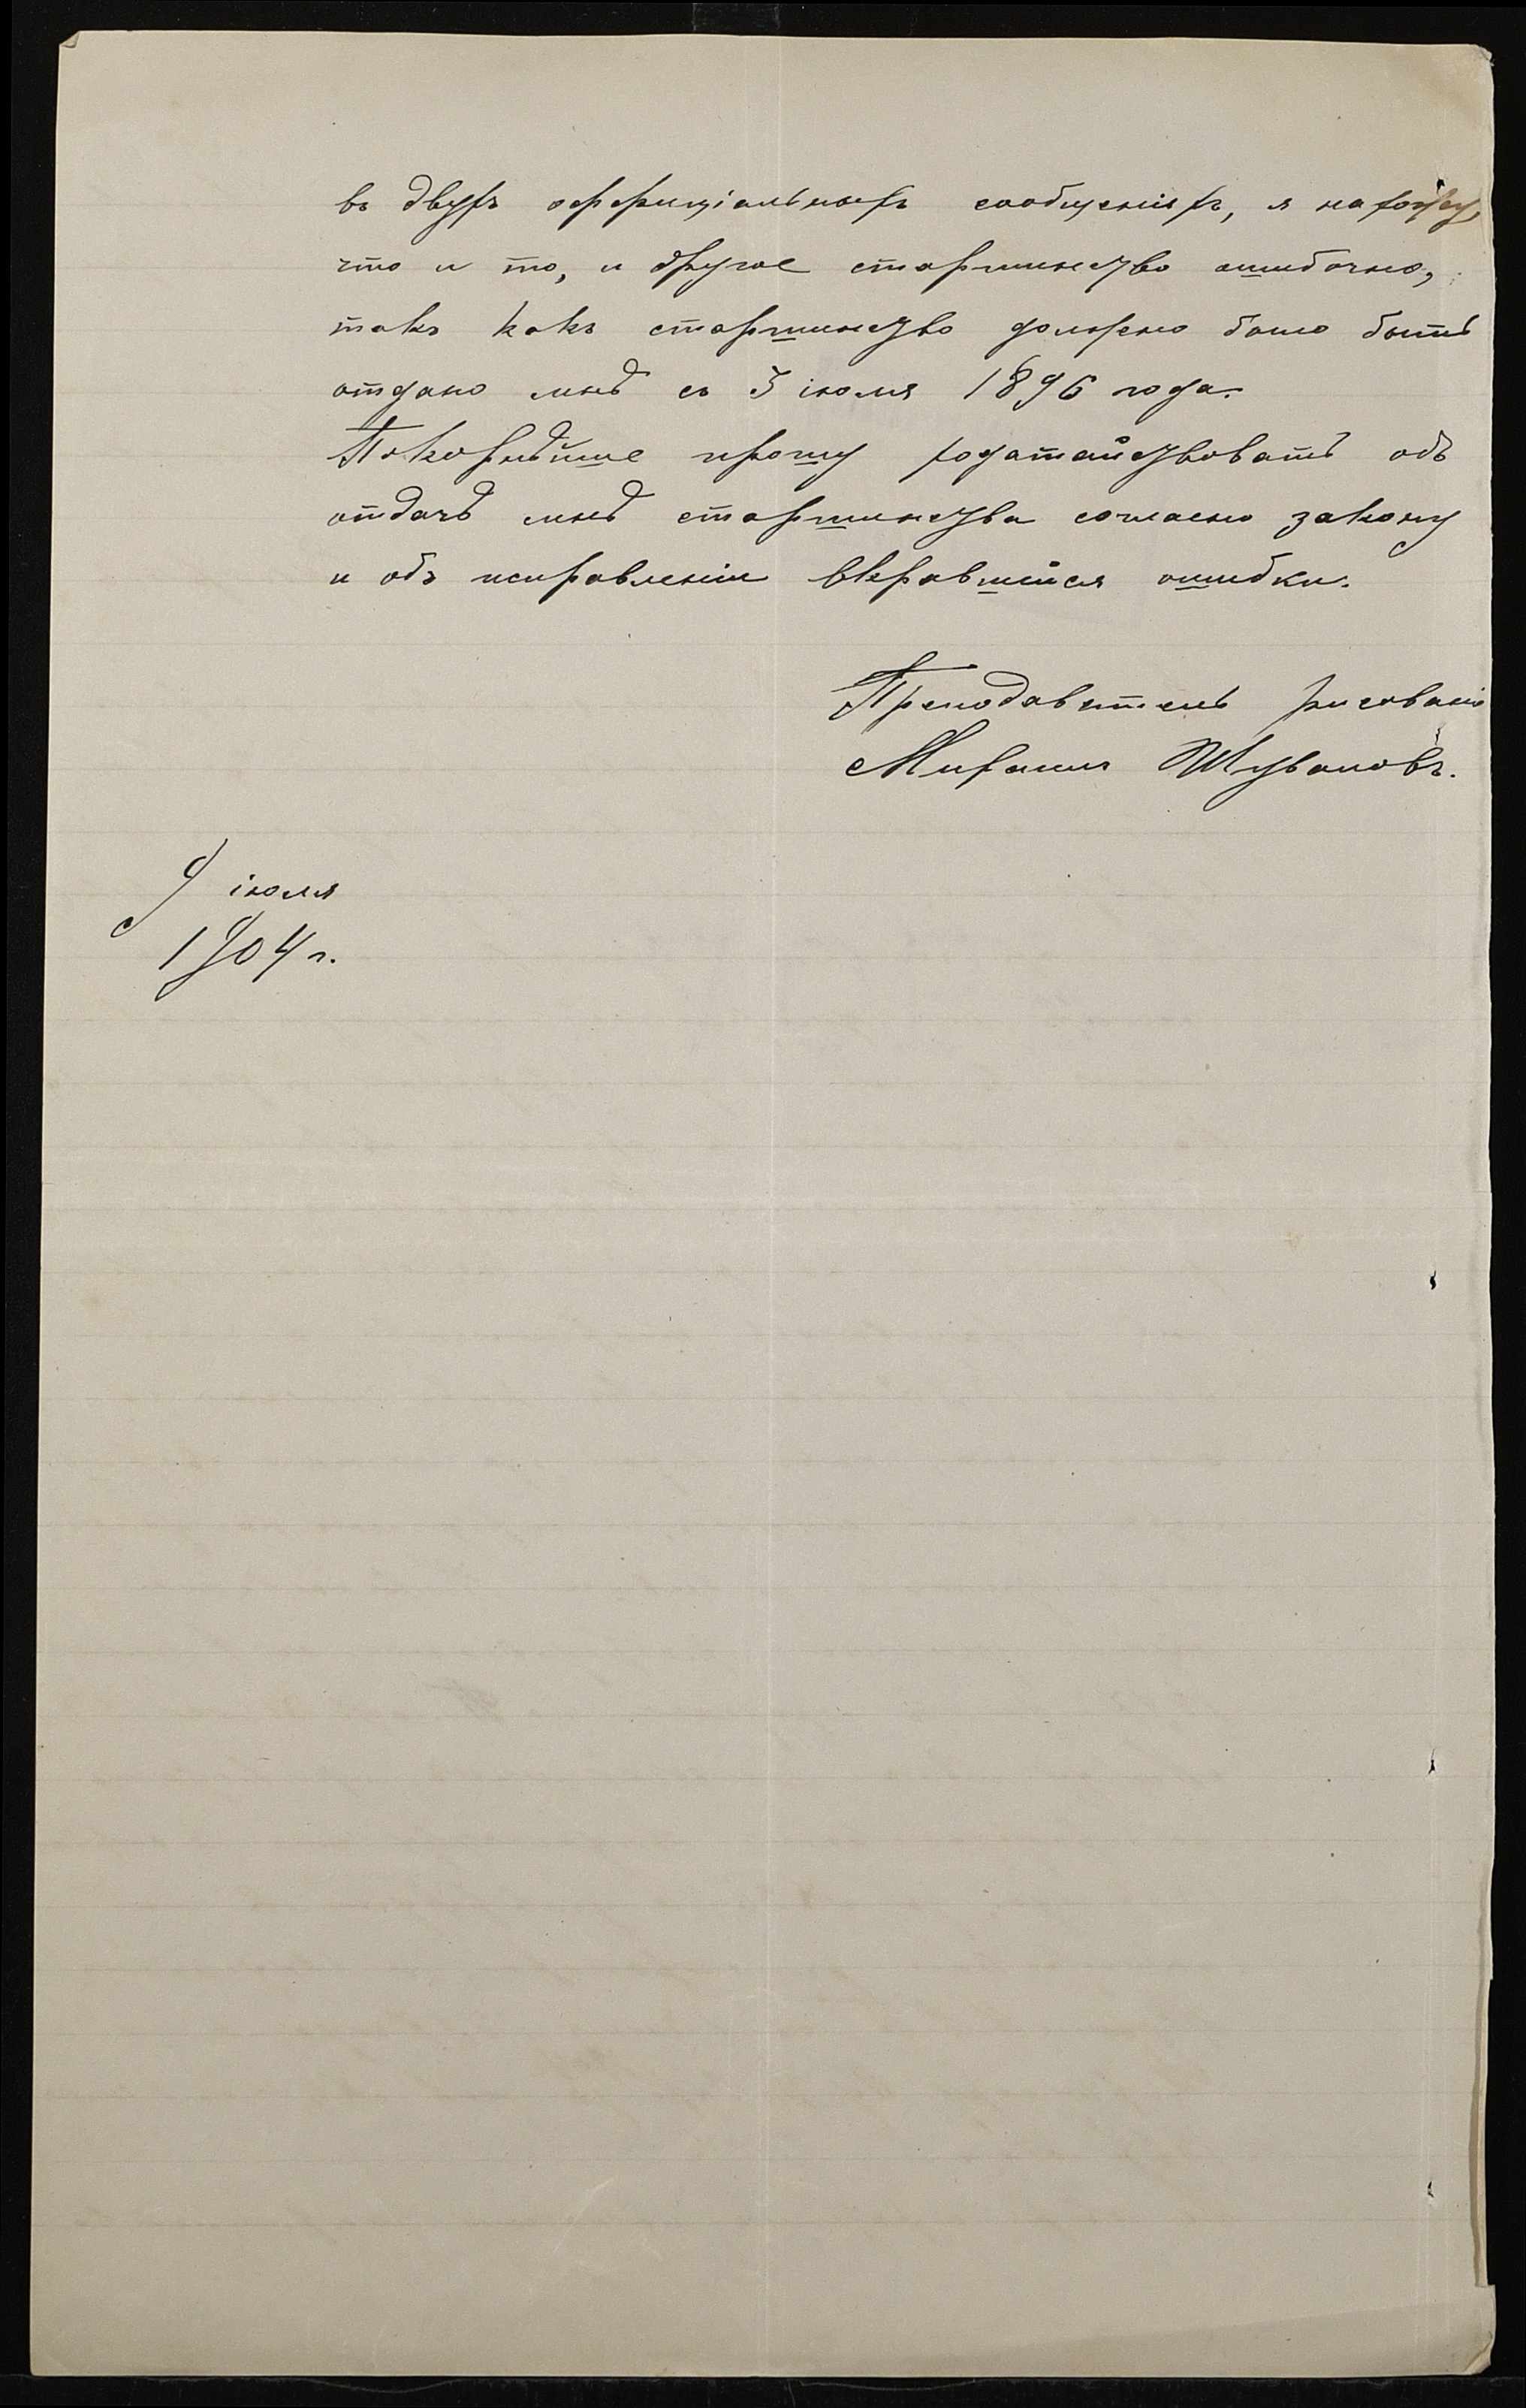 въ двухъ оффиціальныхъ сообщеніяхъ, я нахожу,
что и то, и другое старшинство ошибочно,
такъ какъ старшинство должно было быть
отдано мнѣ съ 5 іюля 1896 года.
Покорнѣйше прошу ходатайствовать объ
отдачѣ мнѣ старшинства согласно закону
и объ исправленіи вкравшейся ошибки.
Преподаватель рисованія
Михаилъ Шуваловъ.
9 іюля
1904 г.